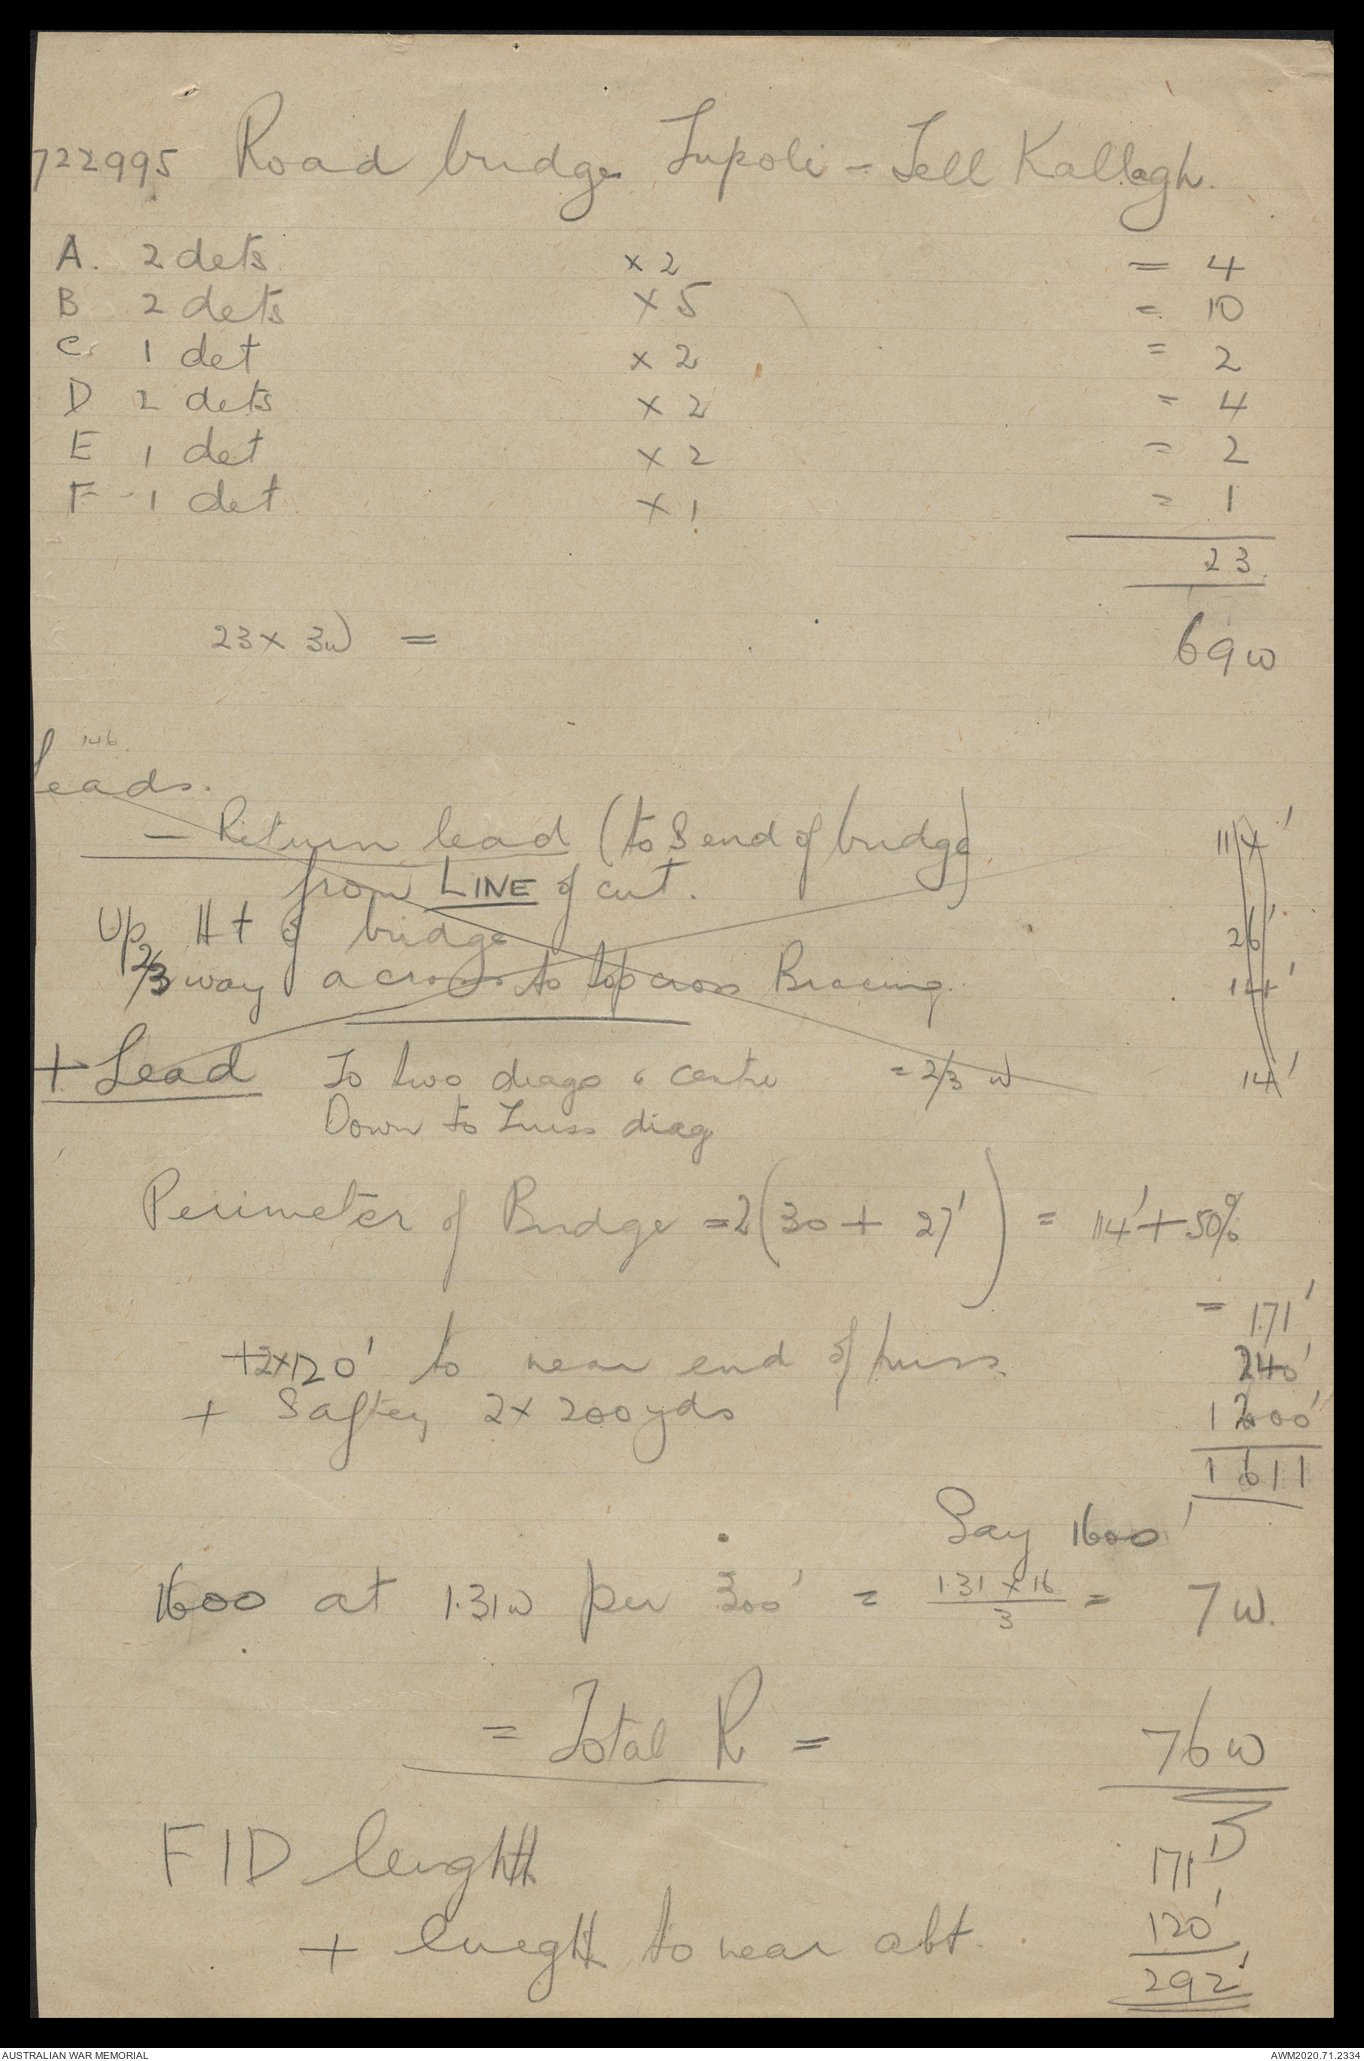 722995 Road bridge Tripoli - Tell Kallagh.
A. 2 dets x 2 = 4
B 2 dets x 5 = 10
C. 1 det x 2 = 2
D 2 dets x 2 = 4
E 1 det x 2 = 2
F - 1 det x 1 = 1
23
23 x 3w = 69w
146
Leads.
- Return lead (to S end of bridge) 114'
from LINE of cut.
Up Ht of bridge 26'
2/3 way across to top cross Bracing 14'
+ Lead To two diags & centre = 2/3 w 14'
Down to Truss diag
Perimeter of Bridge = 2(30 + 27') = 114' + 50%
= 171'
+2x120' to near end of truss. 240'
+ Saftey 2 x 200yds 1200'
1611
Say 1600'
1600 at 1.31w per 300' = 1.31 x 16 / 3 = 7w.
= Total R = 76w
FID lenghth 171'
+ luegth to near abt. 120'
292'
AUSTRALIAN WAR MEMORIAL
AWM2020.71.2334